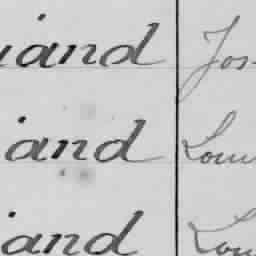 iand Jos
iand Lou
iand Lou